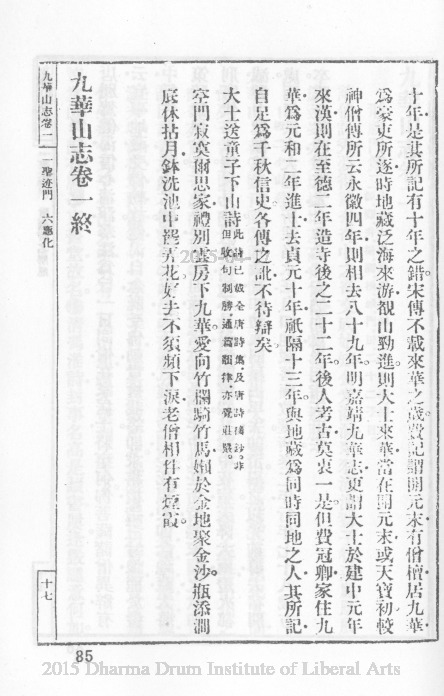 十年。是其所記有十年之錯。宋傳不載來華之歲。費記謂開元末有僧檀居九華。
爲豪吏所逐。時地藏泛海來游。覩山勁進。則大士來華。當在開元末。或天寶初。較
神僧傳所云永徽四年。則相去八十九年。明嘉靖九華志。更謂大士於建中元年
來漢。則在至德二年造寺後之二十二年。後人考古。莫衷一是。但費冠卿家住九
華。爲元和二年進士。去貞元十年。祇隔十三年。與地藏爲同時同地之人。其所記
自足爲千秋信史。各傳之訛。不待辯矣。
大士送童子下山詩 此詩已破全唐詩集。及唐詩 。非但 句制勝。通篇 律。亦覺莊嚴。
空門寂寞爾思家。禮別雲房下九華。愛向竹欄騎竹馬。嬾於金地聚金沙。瓶添澗
底休拈月。鉢洗池中罷弄花。好去不須頻下淚。老僧相伴有煙霞。
九華山志卷一終
九華山志卷一 一聖迹門 六應化
十七
85
2015 Dharma Drum Institute of Liberal Arts